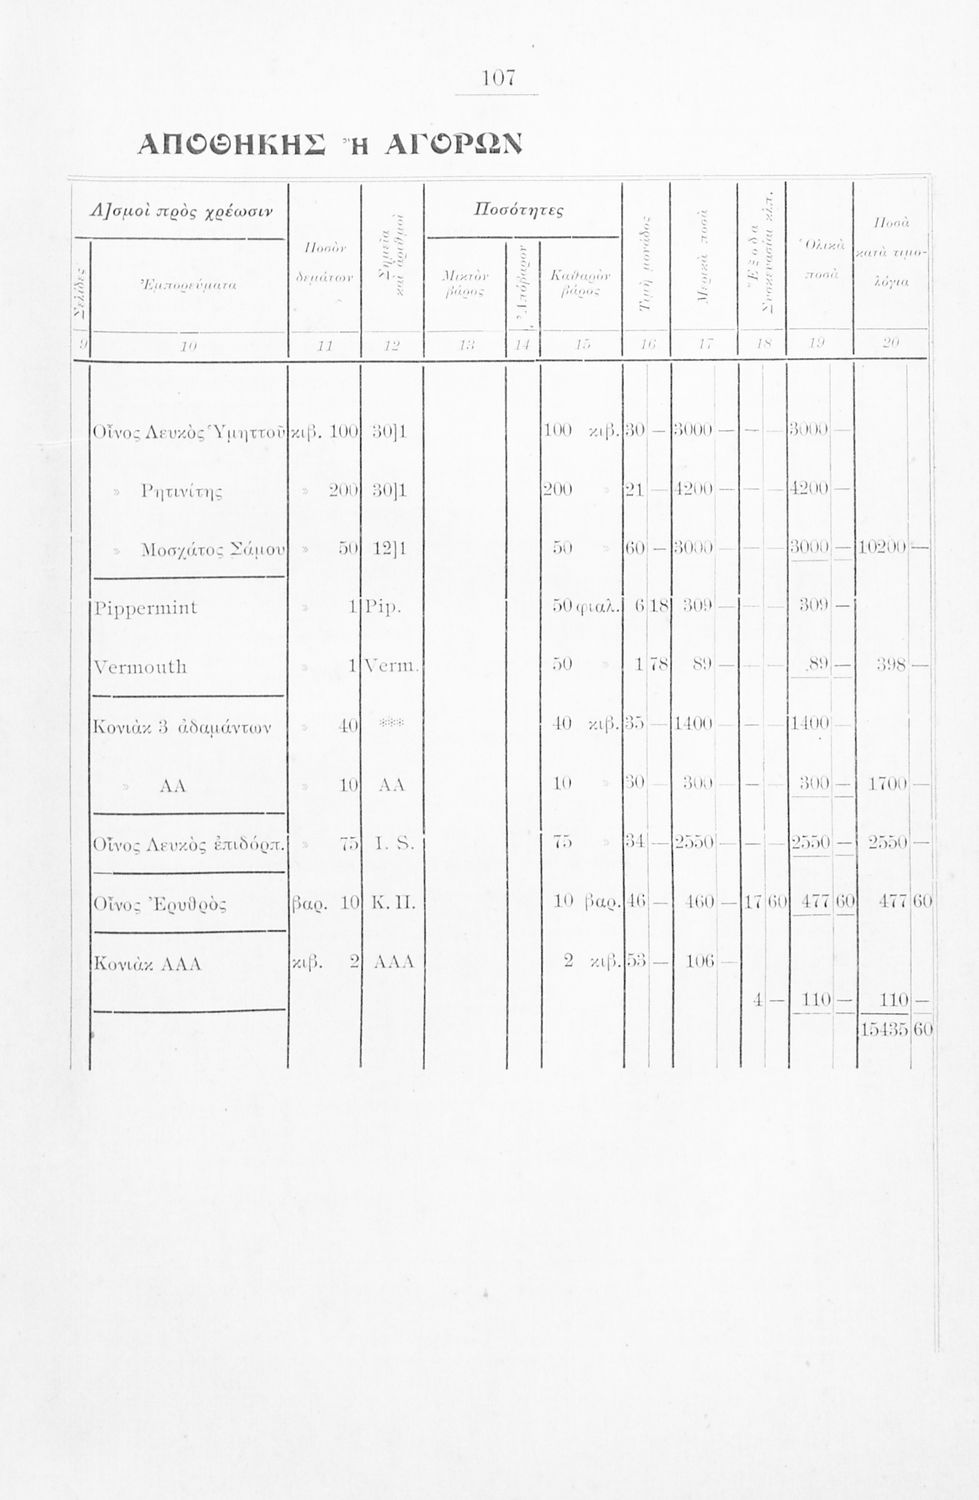 107
ΑΠΟΘΗΚΗΣ Ἢ ΑΓΟΡΩΝ
Λ]σμοὶ πρὸς χρέωσιν Ποσὸν δεμάτων Σημεῖα καὶ ἀριθμοὶ Ποσότητες Τιμὴ μονάδος Μερικὰ ποσὰ Ἔξοδα Συσκευασίας κλπ. Ὁλικὰ ποσὰ Ποσὰ κατὰ τιμο-λόγια
Σελίδες Ἐμπορεύματα Μικτὸν βάρος Ἀπόβαρον Καθαρὸν βάρος
9 10 11 12 13 14 15 16 17 18 19 20
Οἶνος Λευκὸς Ὑμηττοῦ κιβ. 100 30]1 100 κιβ. 30 — 3000 — — — 3000 —
» Ρητινίτης » 200 30]1 200 » 21 — 4200 — — — 4200 —
» Μοσχάτος Σάμου » 50 12]1 50 » 60 — 3000 — — — 3000 — 10200 —
Pippermint » 1 Pip. 50 φιαλ. 6 18 309 — — — 309 —
Vermouth » 1 Verm. 50 » 1 78 89 — — — 89 — 398 —
Κονιὰκ 3 ἀδαμάντων » 40 *** 40 κιβ. 35 — 1400 — — — 1400 —
» ΑΑ » 10 ΑΑ 10 » 30 — 300 — — — 300 — 1700 —
Οἶνος Λευκὸς ἐπιδόρπ. » 75 I. S. 75 » 34 — 2550 — — — 2550 — 2550 —
Οἶνος Ἐρυθρὸς βαρ. 10 Κ. Π. 10 βαρ. 46 — 460 — 17 60 477 60 477 60
Κονιὰκ ΑΑΑ κιβ. 2 ΑΑΑ 2 κιβ. 53 — 106 —
4 — 110 — 110 —
15435 60